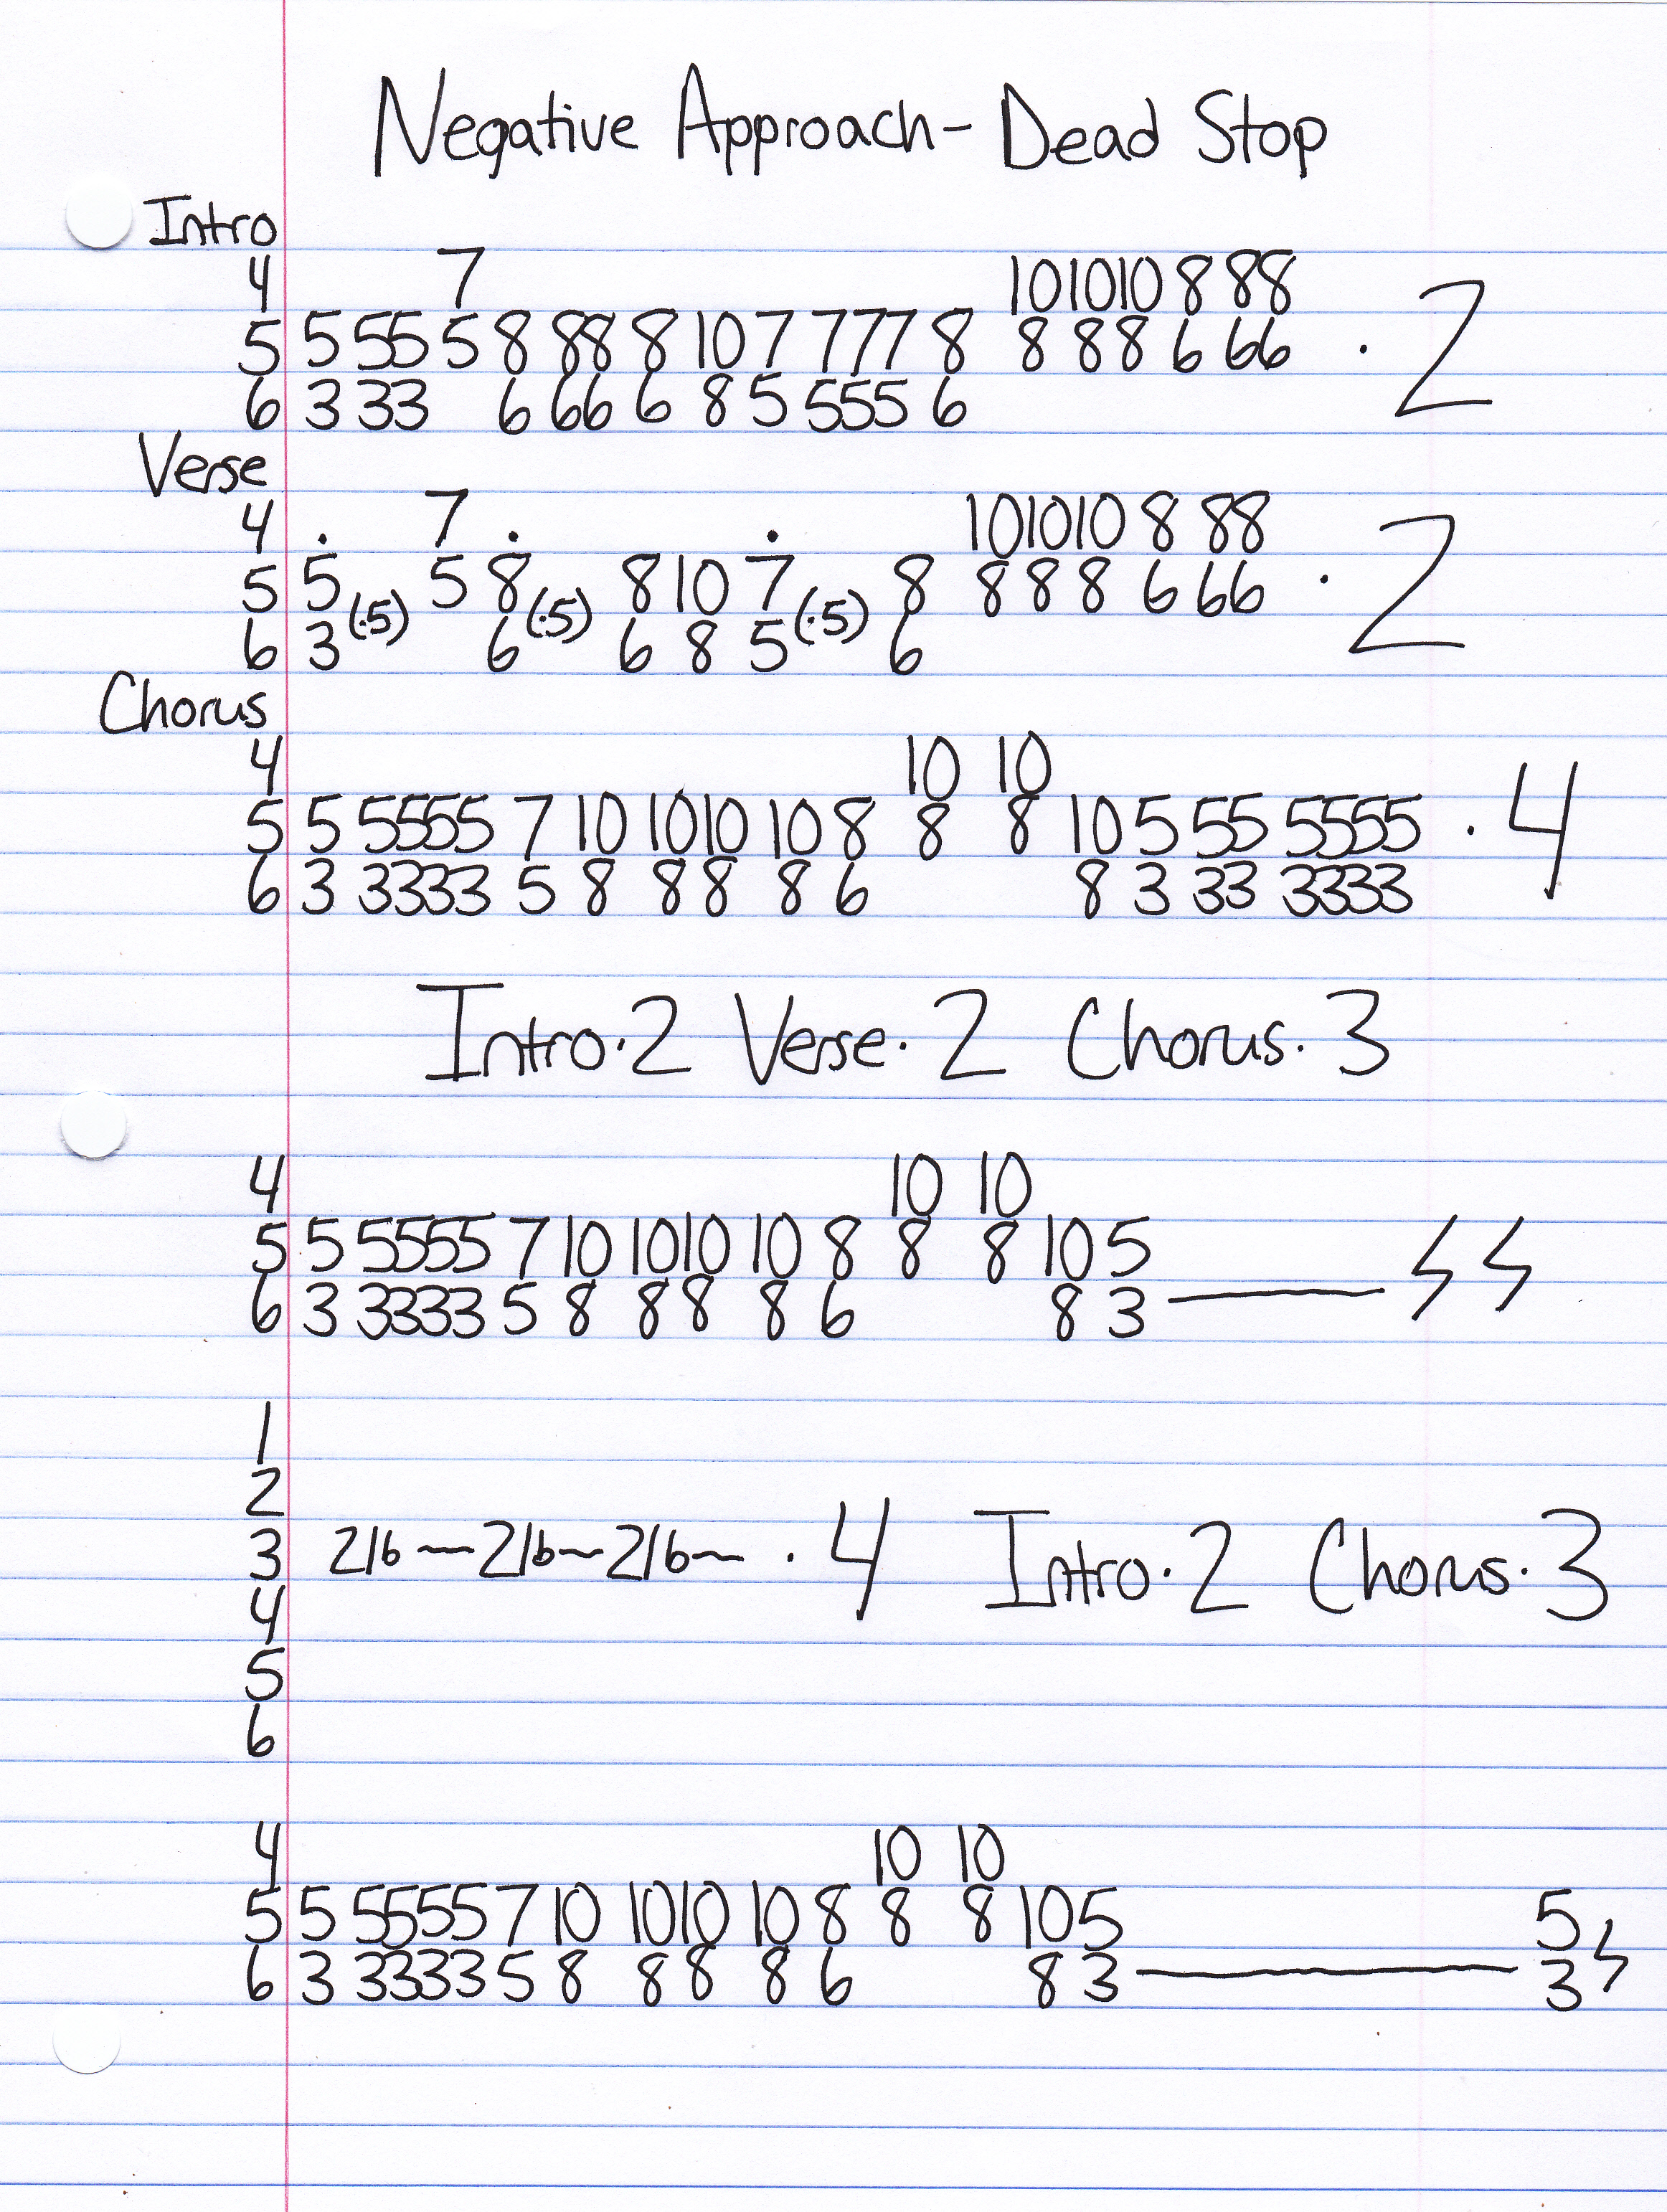 Negative Approach - Dead Stop
Intro
4 7 10 10 10 8 8 8
5 5 5 5 5 8 8 8 8 10 7 7 7 7 8 8 8 8 6 6 6 · 2
6 3 3 3 6 6 6 6 8 5 5 5 5 6
Verse
4 . 7 . . 10 10 10 8 8 8
5 5 (.5) 5 8 (.5) 8 10 7 (.5) 8 8 8 8 6 6 6 · 2
6 3 6 6 8 5 6
Chorus
4 10 10
5 5 5 5 5 5 7 10 10 10 10 8 8 8 10 5 5 5 5 5 5 5 · 4
6 3 3 3 3 3 5 8 8 8 8 6 8 3 3 3 3 3 3 3
Intro · 2 Verse · 2 Chorus · 3
4 10 10
5 5 5 5 5 5 7 10 10 10 10 8 8 8 10 5
6 3 3 3 3 3 5 8 8 8 8 6 8 3
1
2
3 21b~21b~21b~ · 4 Intro · 2 Chorus · 3
4
5
6
4 10 10
5 5 5 5 5 5 7 10 10 10 10 8 8 8 10 5 5
6 3 3 3 3 3 5 8 8 8 8 6 8 3 3